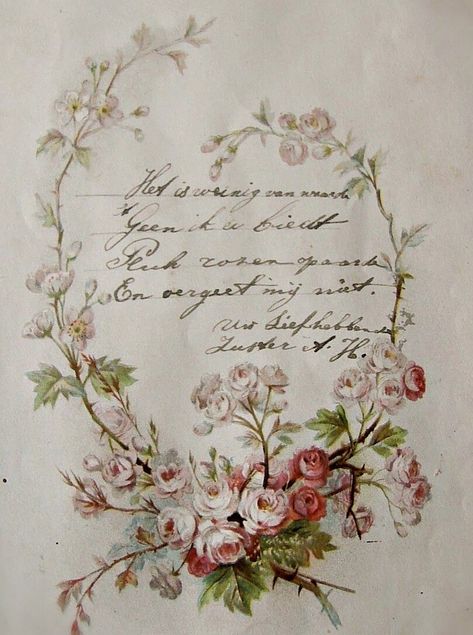 Het is weinig van waarde
't Geen ik u biedt
Pluk rozen op aard
En vergeet mij niet.
Uw Liefhebbende
Zuster A. H.